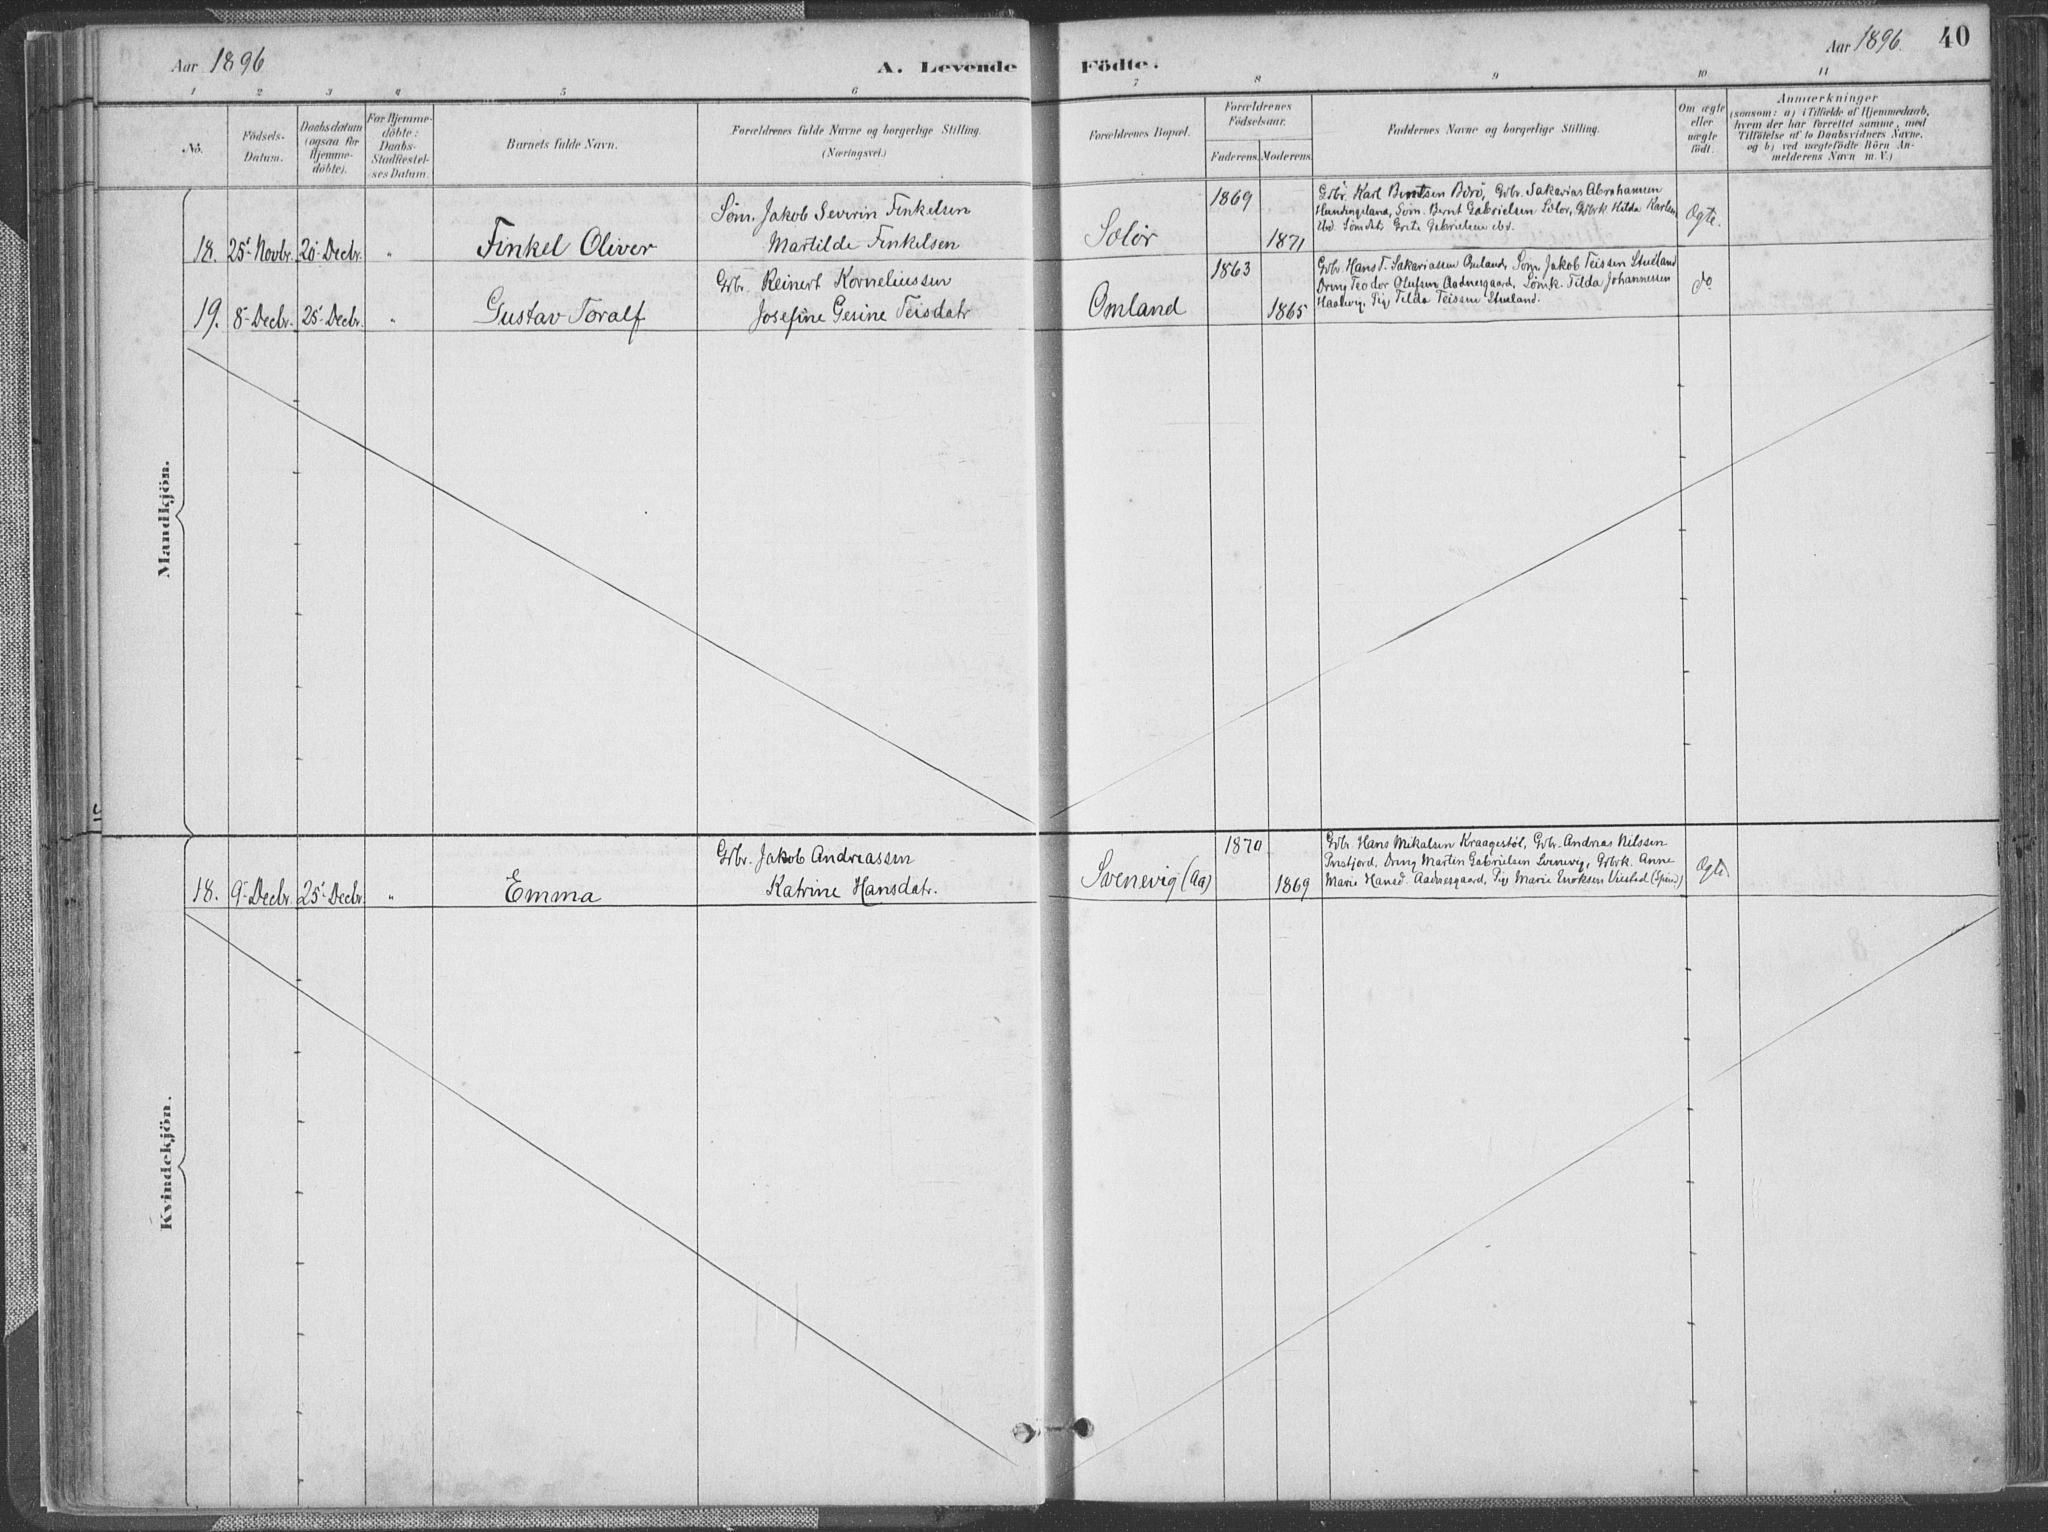 Aar 1896
A. Levende Födte.
Aar 1896.
40
1 2 3 4 5 6 7 8 9 10 11
No.
Födsels-
Datum.
Daabsdatum
(ogsaa for
Hjemme-
döbte).
For Hjemme-
döbte:
Daabs-
Stadfæstel-
ses Datum.
Barnets fulde Navn.
Forældrenes fulde Navne og borgerlige Stilling.
(Næringsvei.)
Forældrenes Bopæl.
Forældrenes
Födselsaar.
Faderens.
Moderens.
Faddernes Navne og borgerlige Stilling.
Om ægte
eller
uægte
födt.
Anmærkninger
(saasom: a) i Tilfælde af Hjemmedaab,
hvem der har forrettet samme, med
Tilföielse af to Daabsvidners Navne,
og b) ved uægtefödte Börn An-
melderens Navn m. V.)
Mandkjön.
18. 25 Novbr. 20 Decbr. " Finkel Oliver
Søm. Jakob Severin Finkelsen
Martilde Finkelsen
Solør
1869
1871
Gbr. Karl Berntsen Birø, Gbr. Sakarias Abrahamsen
Hundingsland, Søm. Bernt Gabrielsen Solør, Gbrk. Hilda Karlsen
ibd. Sømdt. Grete Gabrielsen ibd.
Ægte.
19. 8 Decbr. 25 Decbr. " Gustav Toralf
Gbr. Reinert Korneliussen
Josefine Gesine Teisdatr
Omland
1863
1865
Gbr. Hans T. Sakariassen Omland, Søm. Jakob Teissen Stueland
Dreng Teodor Olufsen Aadnesgaard, Sømk. Tilda Johannessen
Haalvig, Pig. Tilda Teissen Stueland.
do
Kvindekjön.
18. 9 Decbr. 25 Decbr. " Emma
Gbr. Jakob Andreassen
Katrine Hansdatr.
Svenevig (Aa)
1870
1869
Gbr Hans Mikalsen Kraagestøl, Gbr. Andreas Nilssen
Dreng Martin Gabrielsen Svenevig, Gbrk. Anne
Marie Hansd. Aadnesgaard, Pig Marie Enoksen Viestad (Spind)
Ægte.